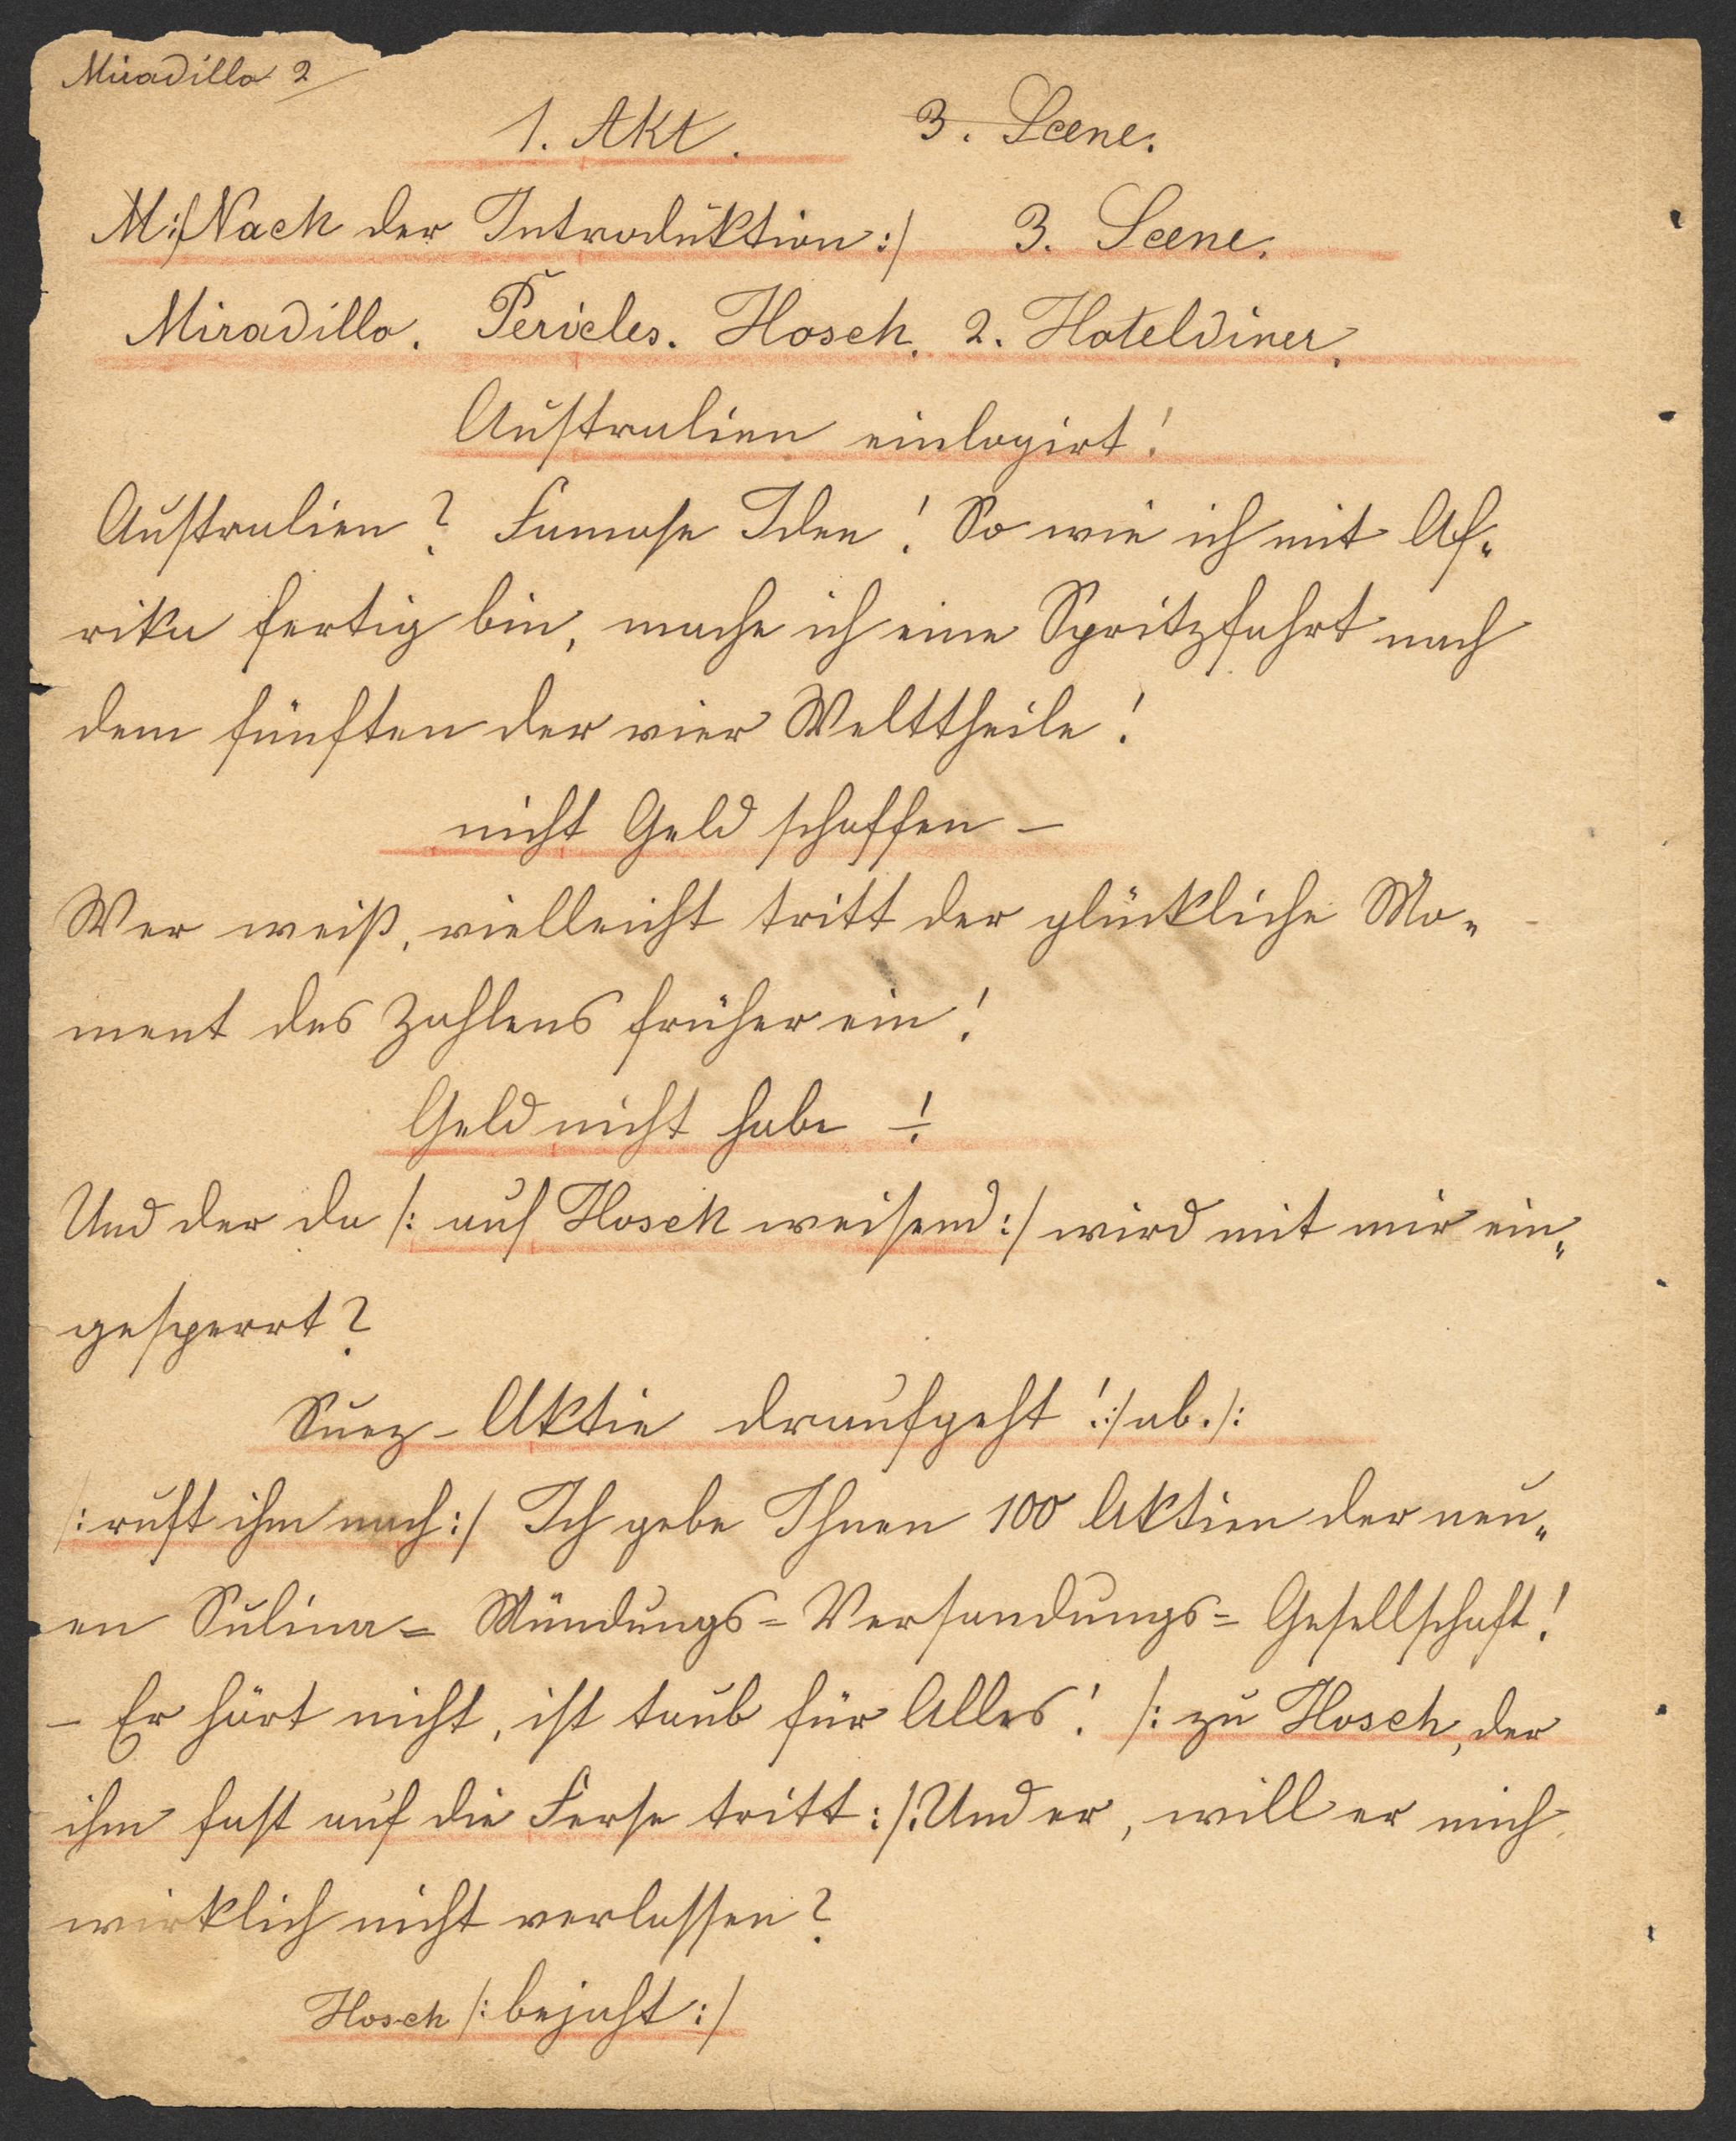 Miradillo 2
1. Akt. 3. Scene.
M:/Nach der Introduktion:/ 3. Scene.
Miradillo. Pericles. Hosch. 2. Hoteldiner.
Australien einlogirt!
Australien? Famose Idee! So wie ich mit Af-
rika fertig bin, mache ich eine Spritzfahrt nach
dem fünften der vier Welttheile!
nicht Geld schaffen –
Wer weiß, vielleicht tritt der glückliche Mo-
ment des Zahlens früher ein!
Geld nicht habe –!
Und der da /: auf Hosch weisend:/ wird mit mir ein-
gesperrt?
Suez-Aktie draufgeht!:/ab./:
/:ruft ihm nach:/ Ich gebe Ihnen 100 Aktien der neu-
en Sulina= Mündungs=Versandungs=Gesellschaft!
– Er hört nicht, ist taub für Alles! /: zu Hosch, der
ihm fast auf die Ferse tritt:/: Und er, will er mich
wirklich nicht verlassen?
Hosch /: bejaht:/